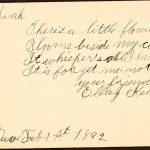 Sarah
There's a little flower
Blooms beside my
It whispers all I
It is forget me not
your friend
Feb 1st 1892